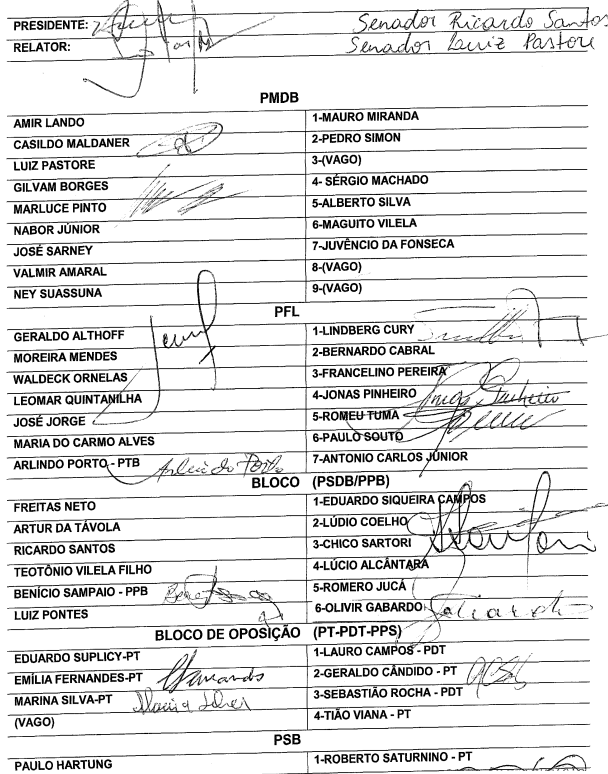 PRESIDENTE: Senador Ricardo Santos
RELATOR: Senador Luiz Pastore
PMDB
AMIR LANDO 1-MAURO MIRANDA
CASILDO MALDANER 2-PEDRO SIMON
LUIZ PASTORE 3-(VAGO)
GILVAM BORGES 4- SÉRGIO MACHADO
MARLUCE PINTO 5-ALBERTO SILVA
NABOR JÚNIOR 6-MAGUITO VILELA
JOSÉ SARNEY 7-JUVÊNCIO DA FONSECA
VALMIR AMARAL 8-(VAGO)
NEY SUASSUNA 9-(VAGO)
PFL
GERALDO ALTHOFF 1-LINDBERG CURY
MOREIRA MENDES 2-BERNARDO CABRAL
WALDECK ORNELAS 3-FRANCELINO PEREIRA
LEOMAR QUINTANILHA 4-JONAS PINHEIRO Jonas Pinheiro
JOSÉ JORGE 5-ROMEU TUMA
MARIA DO CARMO ALVES 6-PAULO SOUTO
ARLINDO PORTO - PTB Arlindo Porto 7-ANTONIO CARLOS JÚNIOR
BLOCO (PSDB/PPB)
FREITAS NETO 1-EDUARDO SIQUEIRA CAMPOS
ARTUR DA TÁVOLA 2-LÚDIO COELHO
RICARDO SANTOS 3-CHICO SARTORI
TEOTÔNIO VILELA FILHO 4-LÚCIO ALCÂNTARA
BENÍCIO SAMPAIO - PPB 5-ROMERO JUCÁ
LUIZ PONTES 6-OLIVIR GABARDO
BLOCO DE OPOSIÇÃO (PT-PDT-PPS)
EDUARDO SUPLICY-PT 1-LAURO CAMPOS - PDT
EMÍLIA FERNANDES-PT 2-GERALDO CÂNDIDO - PT
MARINA SILVA-PT Marina Silva 3-SEBASTIÃO ROCHA - PDT
(VAGO) 4-TIÃO VIANA - PT
PSB
PAULO HARTUNG 1-ROBERTO SATURNINO - PT